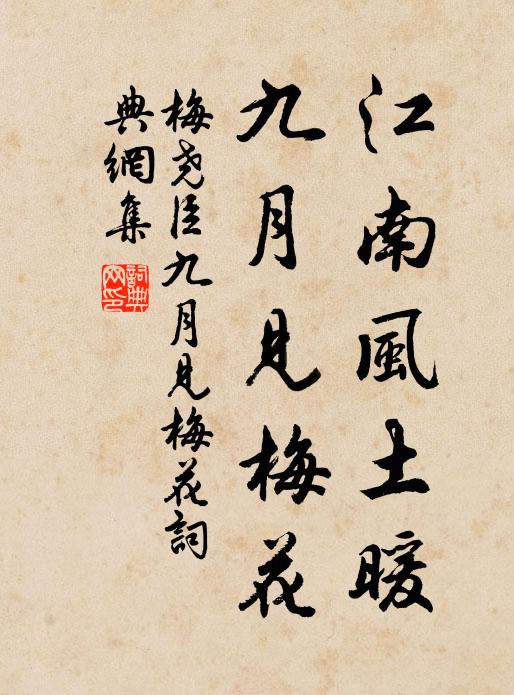 江南風土暖
九月見梅花
梅堯臣九月見梅花詞
典網集
詞典網印